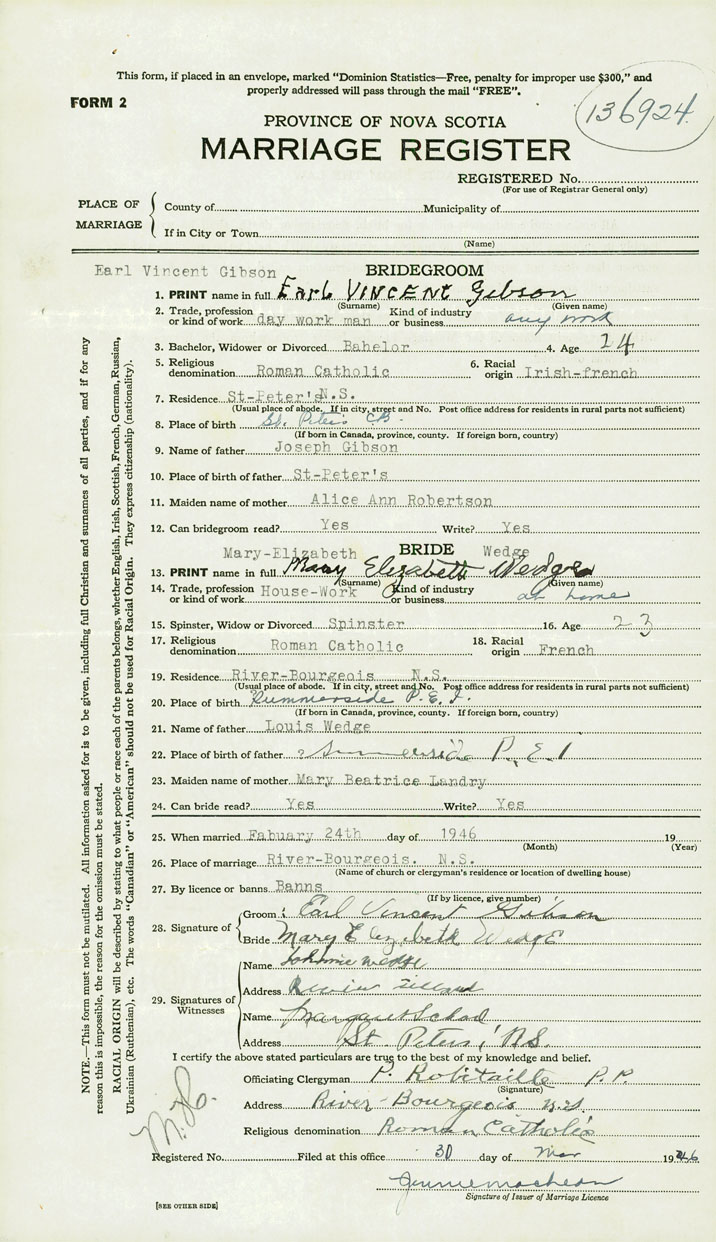 This form, if placed in an envelope, marked "Dominion Statistics—Free, penalty for improper use $300," and
properly addressed will pass through the mail "FREE".
FORM 2
136924
PROVINCE OF NOVA SCOTIA
MARRIAGE REGISTER
REGISTERED No.
(For use of Registrar General only)
PLACE OF MARRIAGE
County of Municipality of
If in City or Town
(Name)
Earl Vincent Gibson BRIDEGROOM
1. PRINT name in full Earl VINCENT Gibson
(Surname) (Given name)
2. Trade, profession or kind of work day work man Kind of industry or business any work
3. Bachelor, Widower or Divorced Bahelor 4. Age 24
5. Religious denomination Roman Catholic 6. Racial origin Irish-french
7. Residence St-Peter's N.S.
(Usual place of abode. If in city, street and No. Post office address for residents in rural parts not sufficient)
8. Place of birth St. Peters C.B.
(If born in Canada, province, county. If foreign born, country)
9. Name of father Joseph Gibson
10. Place of birth of father St-Peter's
11. Maiden name of mother Alice Ann Robertson
12. Can bridegroom read? Yes Write? Yes
Mary-Elizabeth BRIDE Wedge
13. PRINT name in full Mary Elizabeth Wedge
(Surname) (Given name)
14. Trade, profession or kind of work House-Work Kind of industry or business at home
15. Spinster, Widow or Divorced Spinster 16. Age 23
17. Religious denomination Roman Catholic 18. Racial origin French
19. Residence River-Bourgeois N.S.
(Usual place of abode. If in city, street and No. Post office address for residents in rural parts not sufficient)
20. Place of birth Summerside P.E.I.
(If born in Canada, province, county. If foreign born, country)
21. Name of father Louis Wedge
22. Place of birth of father ? Summerside P.E.I
23. Maiden name of mother Mary Beatrice Landry
24. Can bride read? Yes Write? Yes
25. When married Fabuary 24th day of 1946 19
(Month) (Year)
26. Place of marriage River-Bourgeois. N.S.
(Name of church or clergyman's residence or location of dwelling house)
27. By licence or banns Banns
(If by licence, give number)
28. Signature of
Groom: Earl Vincent Gibson
Bride Mary Elizabeth Wedge
29. Signatures of Witnesses
Name Johnnie Wedge
Address
Name Margaret
Address St. Peters, N.S.
I certify the above stated particulars are true to the best of my knowledge and belief.
Officiating Clergyman P. Robitaille P.P.
(Signature)
Address River-Bourgeois N.S.
Religious denomination Roman Catholic
Registered No. Filed at this office 30 day of Mar 1946
Signature of Issuer of Marriage Licence
[SEE OTHER SIDE]
NOTE.—This form must not be mutilated. All information asked for is to be given, including full Christian and surnames of all parties, and if for any
reason this is impossible, the reason for the omission must be stated.
RACIAL ORIGIN will be described by stating to what people or race each of the parents belongs, whether English, Irish, Scottish, French, German, Russian,
Ukrainian (Ruthenian), etc. The words "Canadian" or "American" should not be used for Racial Origin. They express citizenship (nationality).